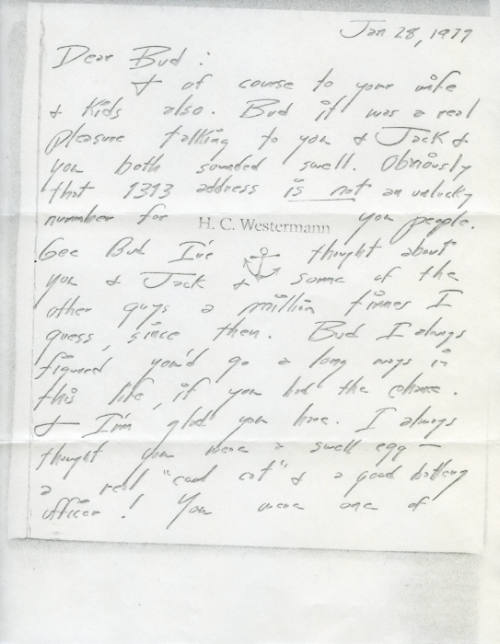 Jan 28, 1977
Dear Bud :
& of course to your wife
& Kids also. Bud it was a real
pleasure talking to you & Jack &
you both sounded swell. Obviously
that 1313 address is not an unlucky
number for you people.
H. C. Westermann
Gee Bud I've thought about
you & Jack & some of the
other guys a million times I
guess, since then. Bud I always
figured you'd go a long ways in
this life, if you had the chance.
& I'm glad you have. I always
thought you were a swell egg —
a real "cool cat" & a good
officer! You were one of